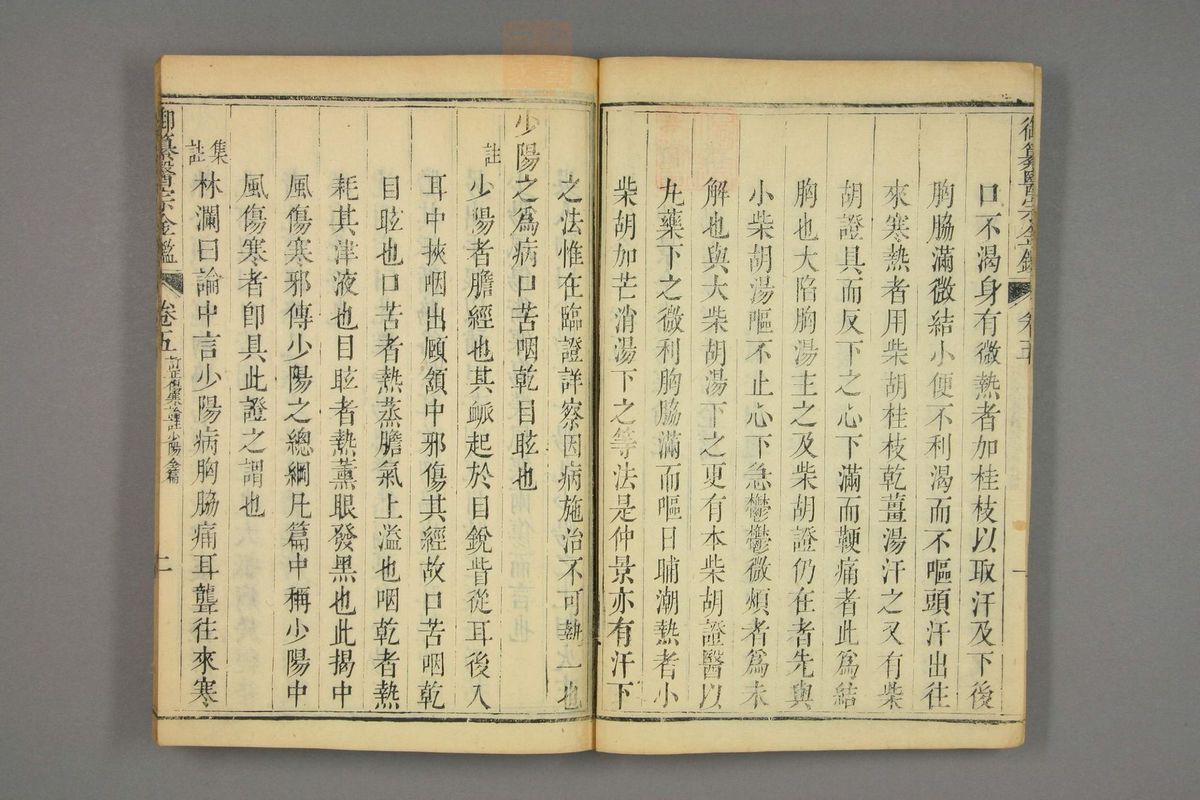 御纂醫宗金鑑 卷五
口不渴身有微熱者加桂枝以取汗及下後
胸脇滿微結小便不利渴而不嘔頭汗出往
來寒熱者用柴胡桂枝乾薑湯汗之又有柴
胡證具而反下之心下滿而鞕痛者此爲結
胸也大陷胸湯主之及柴胡證仍在者先與
小柴胡湯嘔不止心下急鬱鬱微煩者爲未
解也與大柴胡湯下之更有本柴胡證醫以
丸藥下之微利胸脇滿而嘔日晡潮熱者小
柴胡加芒消湯下之等法是仲景亦有汗下
之法惟在臨證詳察因病施治不可執一也
少陽之爲病口苦咽乾目眩也
註 少陽者膽經也其䘑起於目銳眥從耳後入
耳中挾咽出頤頷中邪傷其經故口苦咽乾
目眩也口苦者熱蒸膽氣上溢也咽乾者熱
耗其津液也目眩者熱薰眼發黑也此揭中
風傷寒邪傳少陽之總綱凡篇中稱少陽中
風傷寒者卽具此證之謂也
集註 林瀾曰論中言少陽病胸脇痛耳聾往來寒
御纂醫宗金鑑 卷五 訂正傷寒論註少陽全篇 二